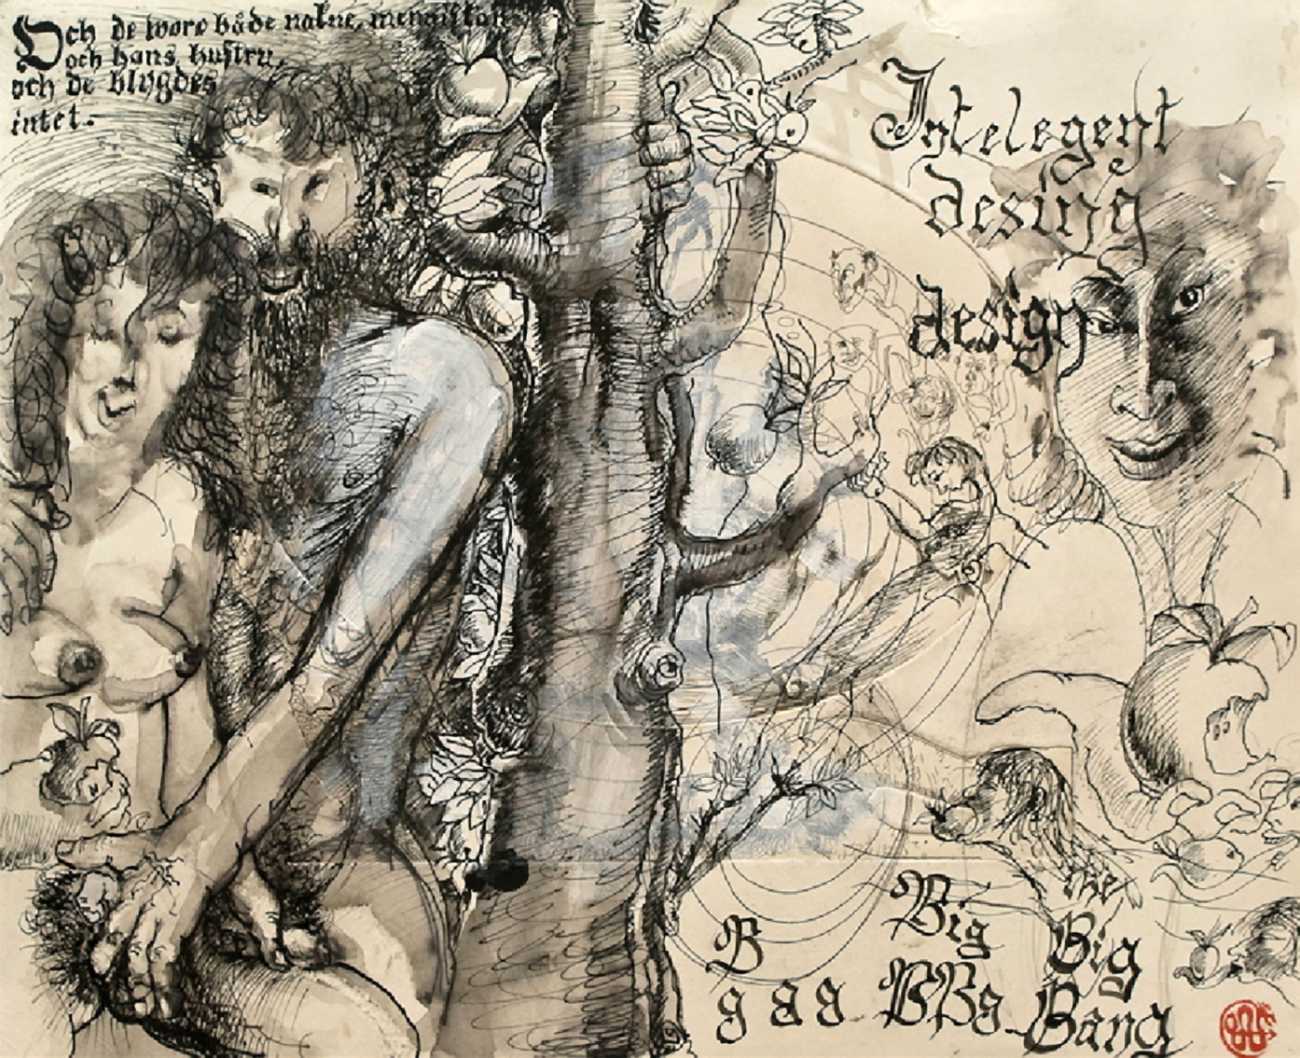 Och de woro både nakne, mennistan
och hans hustru,
och de blygdes
intet.
Intelegent
desing
design
the
B Big Big
g a g BBg Bang